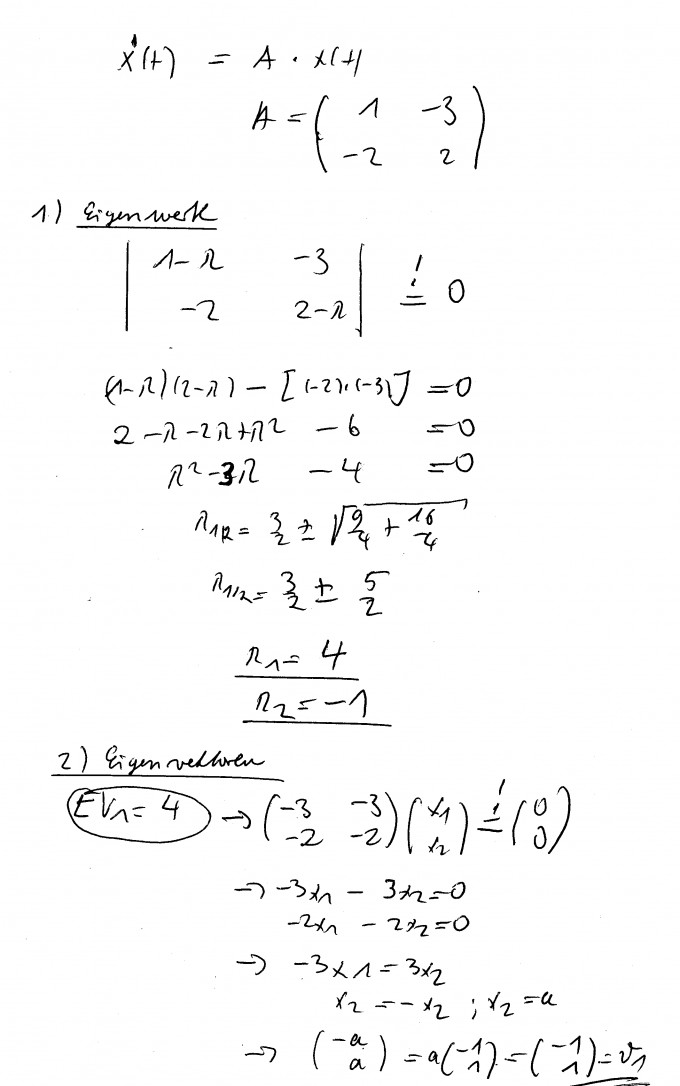 ẋ(t) = A · x(t)
A = ( 1 -3
-2 2 )
1.) Eigenwerte
| 1-λ -3 |
| -2 2-λ | != 0
(1-λ)(2-λ) - [(-2)·(-3)] = 0
2 - λ - 2λ + λ² - 6 = 0
λ² - 3λ - 4 = 0
λ1/2 = 3/2 ± √(9/4 + 16/4)
λ1/2 = 3/2 ± 5/2
λ1 = 4
λ2 = -1
2) Eigenvektoren
EV1 = 4 → (-3 -3
-2 -2) (x1
x2) != (0
0)
→ -3x1 - 3x2 = 0
-2x1 - 2x2 = 0
→ -3x1 = 3x2
x2 = -x2 ; x2 = a
→ (-a
a) = a(-1
1) = (-1
1) = v1